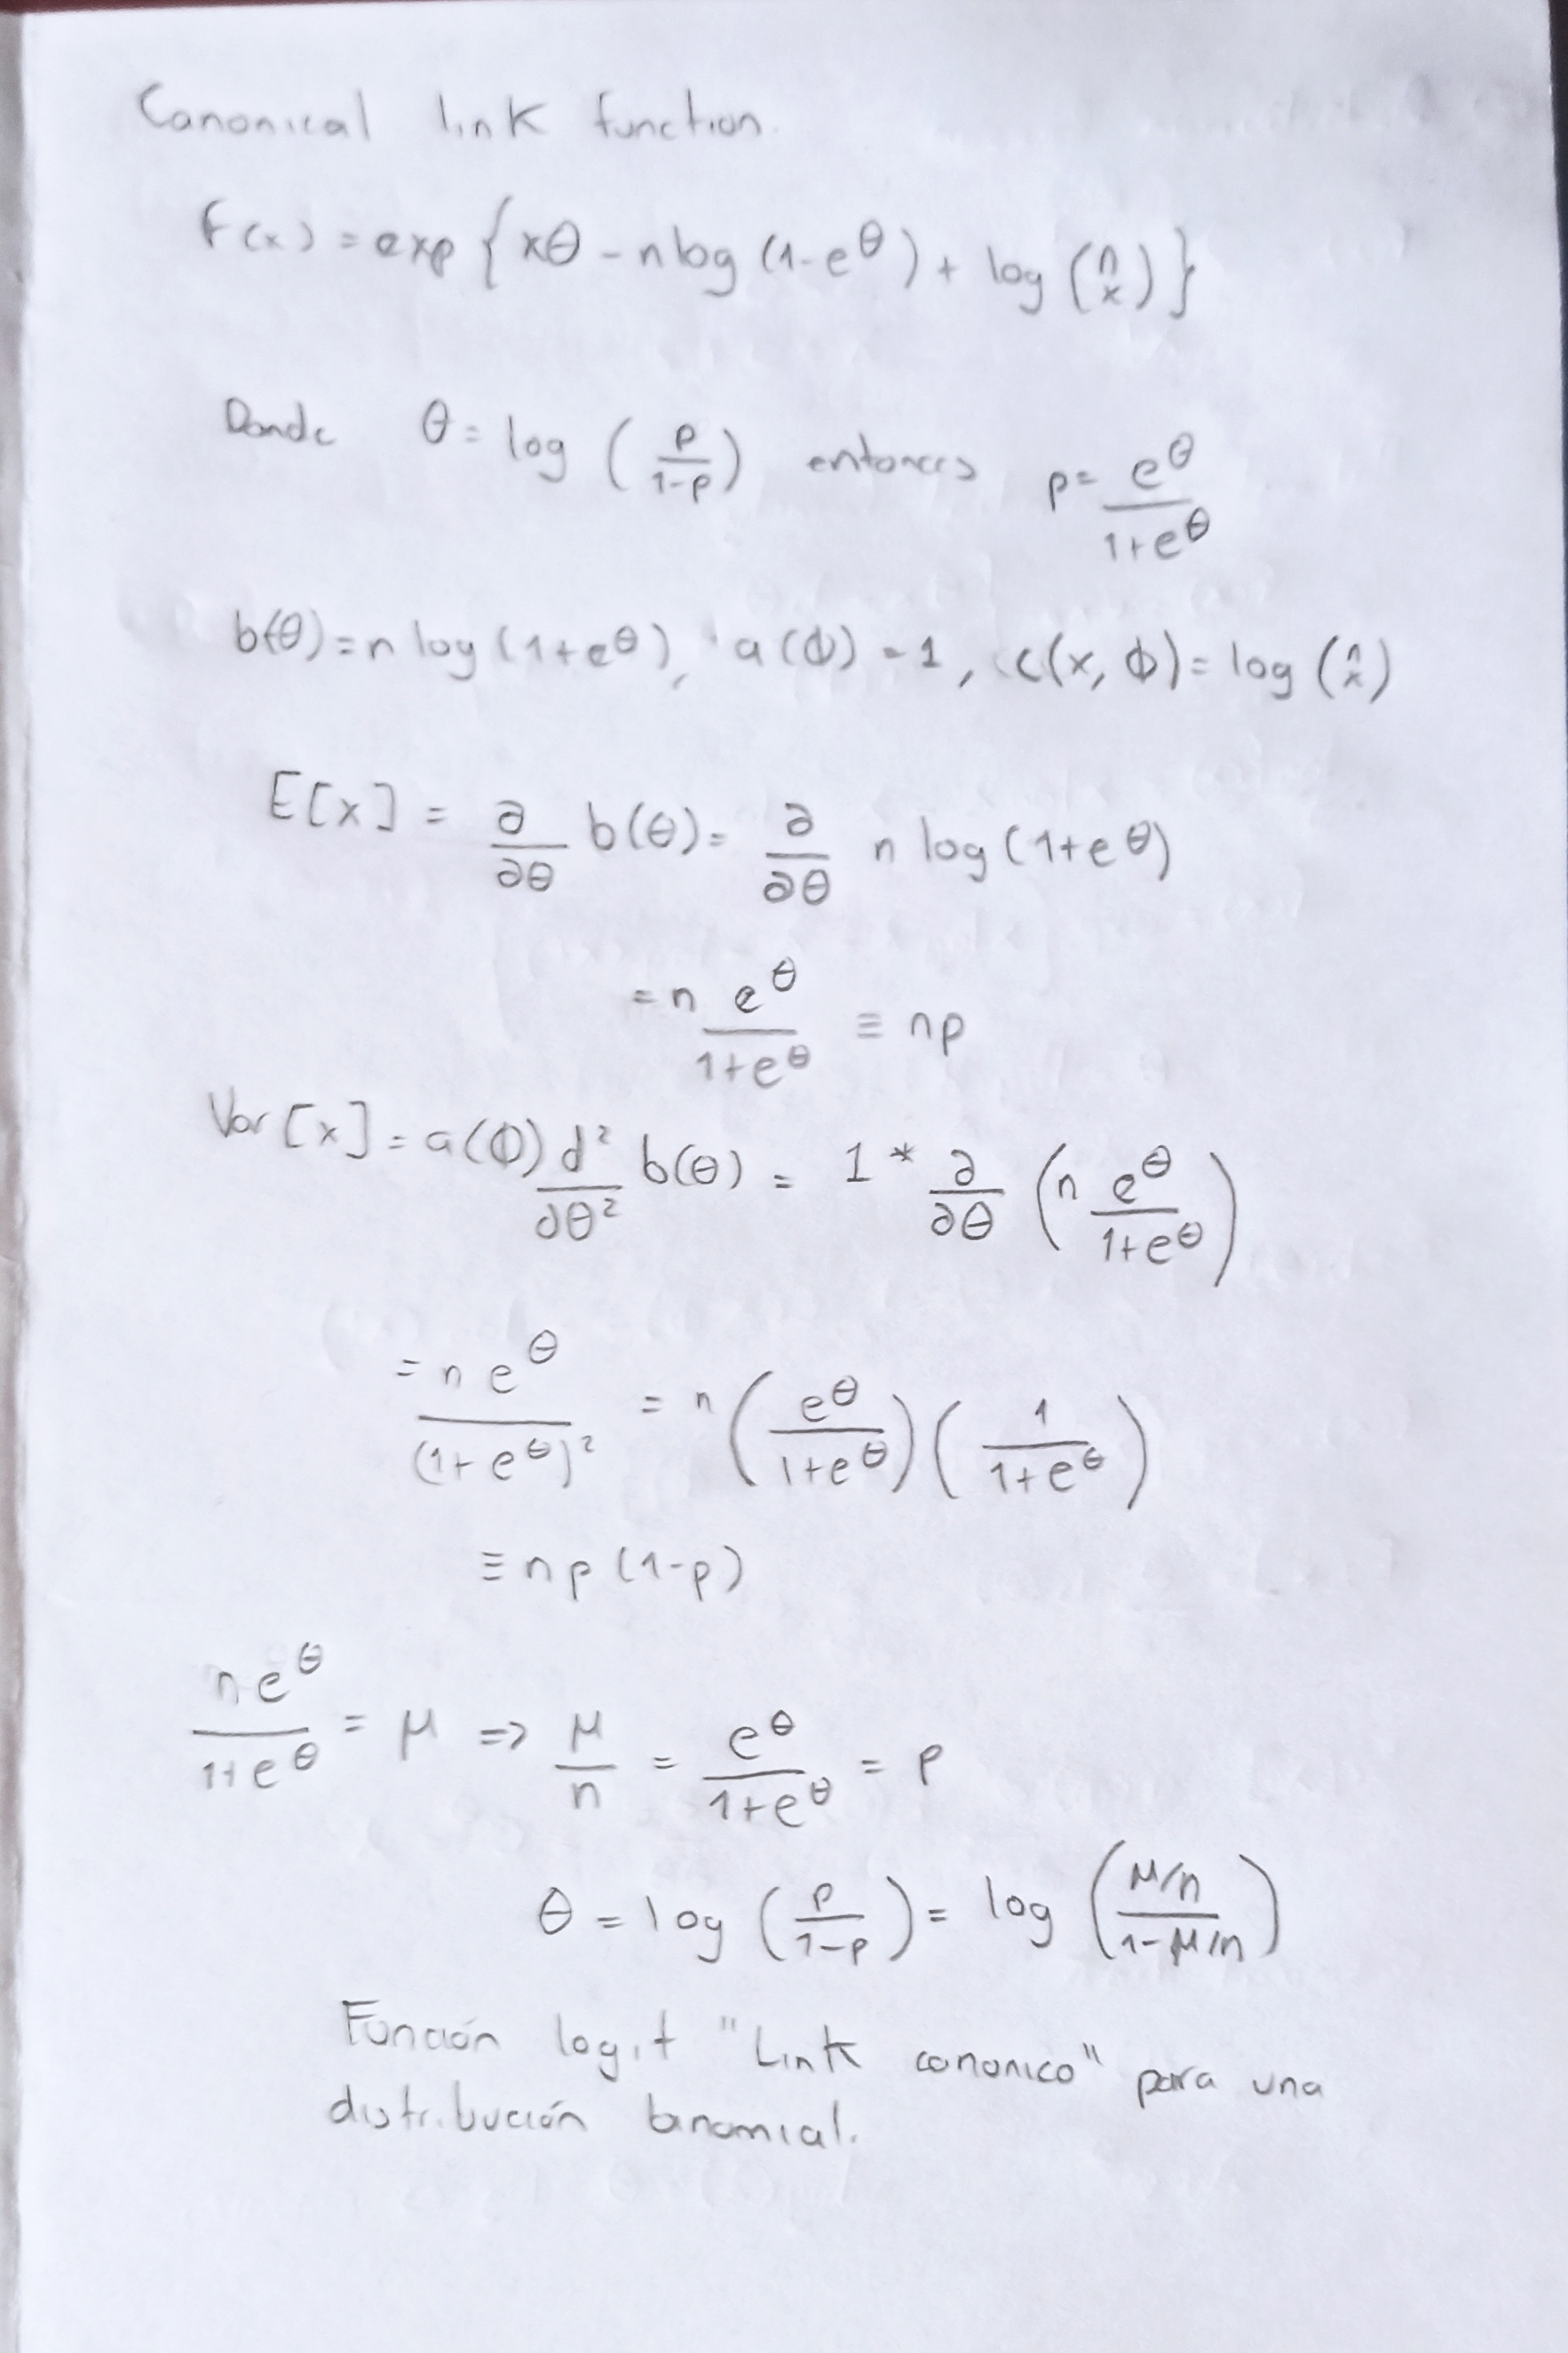 Canonical link function.
f(x) = exp {xθ - n log (1-e^θ) + log (n x)}
Donde θ = log (p/(1-p)) entonces p = e^θ/(1+e^θ)
b(θ) = n log (1+e^θ), a(ϕ) = 1, c(x, ϕ) = log (n x)
E[x] = ∂/∂θ b(θ) = ∂/∂θ n log (1+e^θ)
= n e^θ/(1+e^θ) ≡ np
Var [x] = a(ϕ) d²/∂θ² b(θ) = 1 * ∂/∂θ (n e^θ/(1+e^θ))
= n e^θ/(1+e^θ)² = n (e^θ/(1+e^θ)) (1/(1+e^θ))
≡ np (1-p)
n e^θ/(1+e^θ) = μ => μ/n = e^θ/(1+e^θ) = p
θ = log (p/(1-p)) = log ((μ/n)/(1-μ/n))
Función logit "Link canonico" para una
distribución binomial.